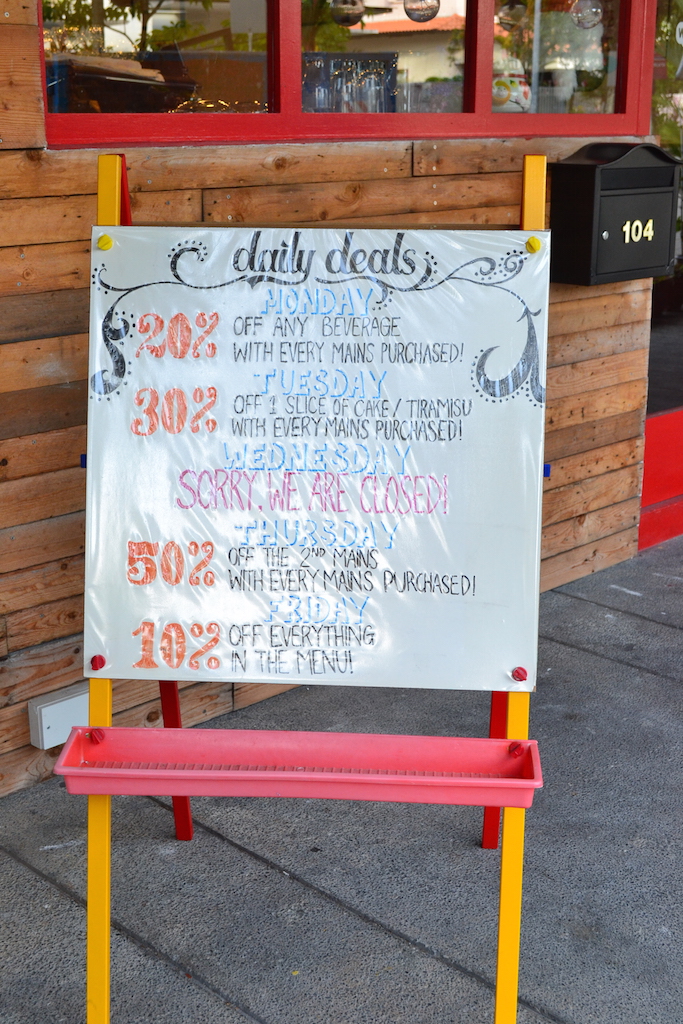 daily deals
MONDAY
20% OFF ANY BEVERAGE
WITH EVERY MAINS PURCHASED!
TUESDAY
30% OFF 1 SLICE OF CAKE/TIRAMISU
WITH EVERY MAINS PURCHASED!
WEDNESDAY
SORRY, WE ARE CLOSED!
THURSDAY
50% OFF THE 2ND MAINS
WITH EVERY MAINS PURCHASED!
FRIDAY
10% OFF EVERYTHING
IN THE MENU!
104